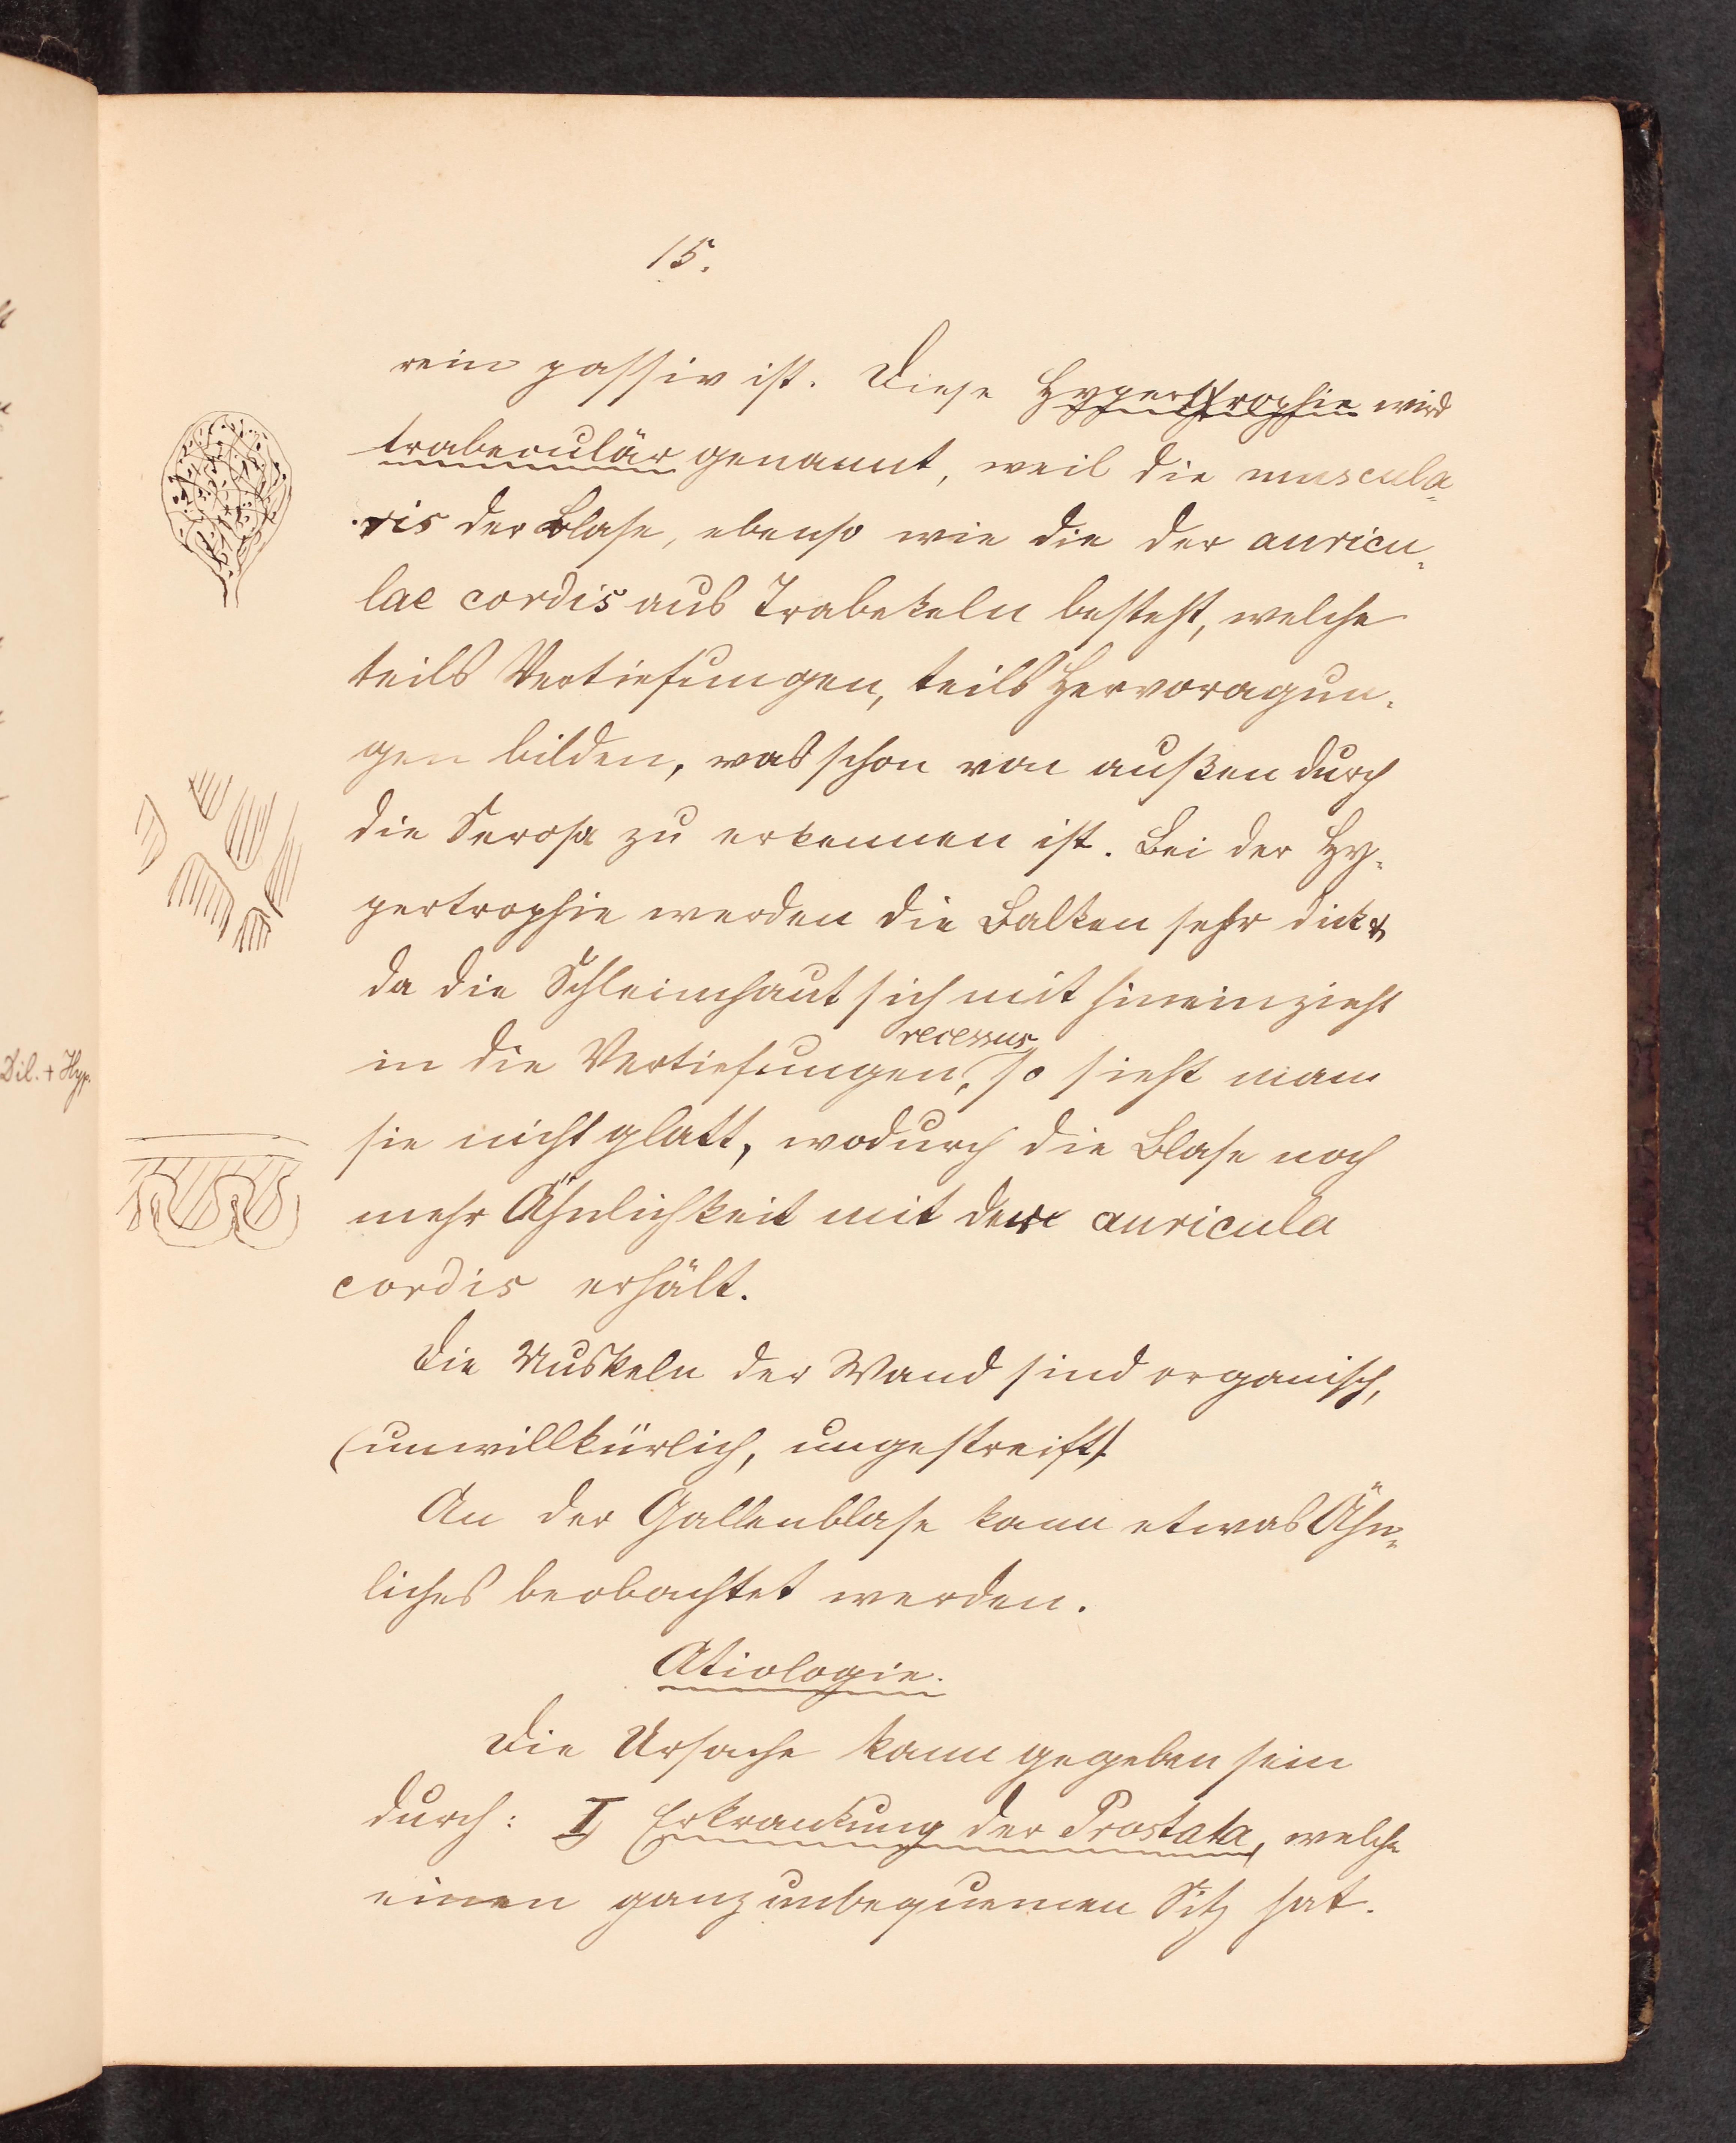 15.
rein passiv ist. Diese Hypertrophie wird
trabeculär genannt, weil die muscula-
ris der Blase, ebenso wie die der auricu-
lae cordis aus Trabekeln besteht, welche
teils Vertiefungen, teils Hervoragun-
gen bilden, was schon von außen durch
die Serosa zu erkennen ist. Bei der Hy-
pertrophie werden die Balken sehr dick &
da die Schleimhaut sich mit hineinzieht
recessus
in die Vertiefungen, so sieht man
sie nicht glatt, wodurch die Blase noch
mehr Ähnlichkeit mit der auricula
cordis erhält.
Die Muskeln der Wand sind organisch,
(unwillkürlich, ungestreift).
An der Gallenblase kann etwas Ähn-
liches beobachtet werden.
Ätiologie.
Die Ursache kann gegeben sein
durch: I) Erkrankung der Prostata, welche
einen ganz unbequemen Sitz hat.
Dil. + Hyp.